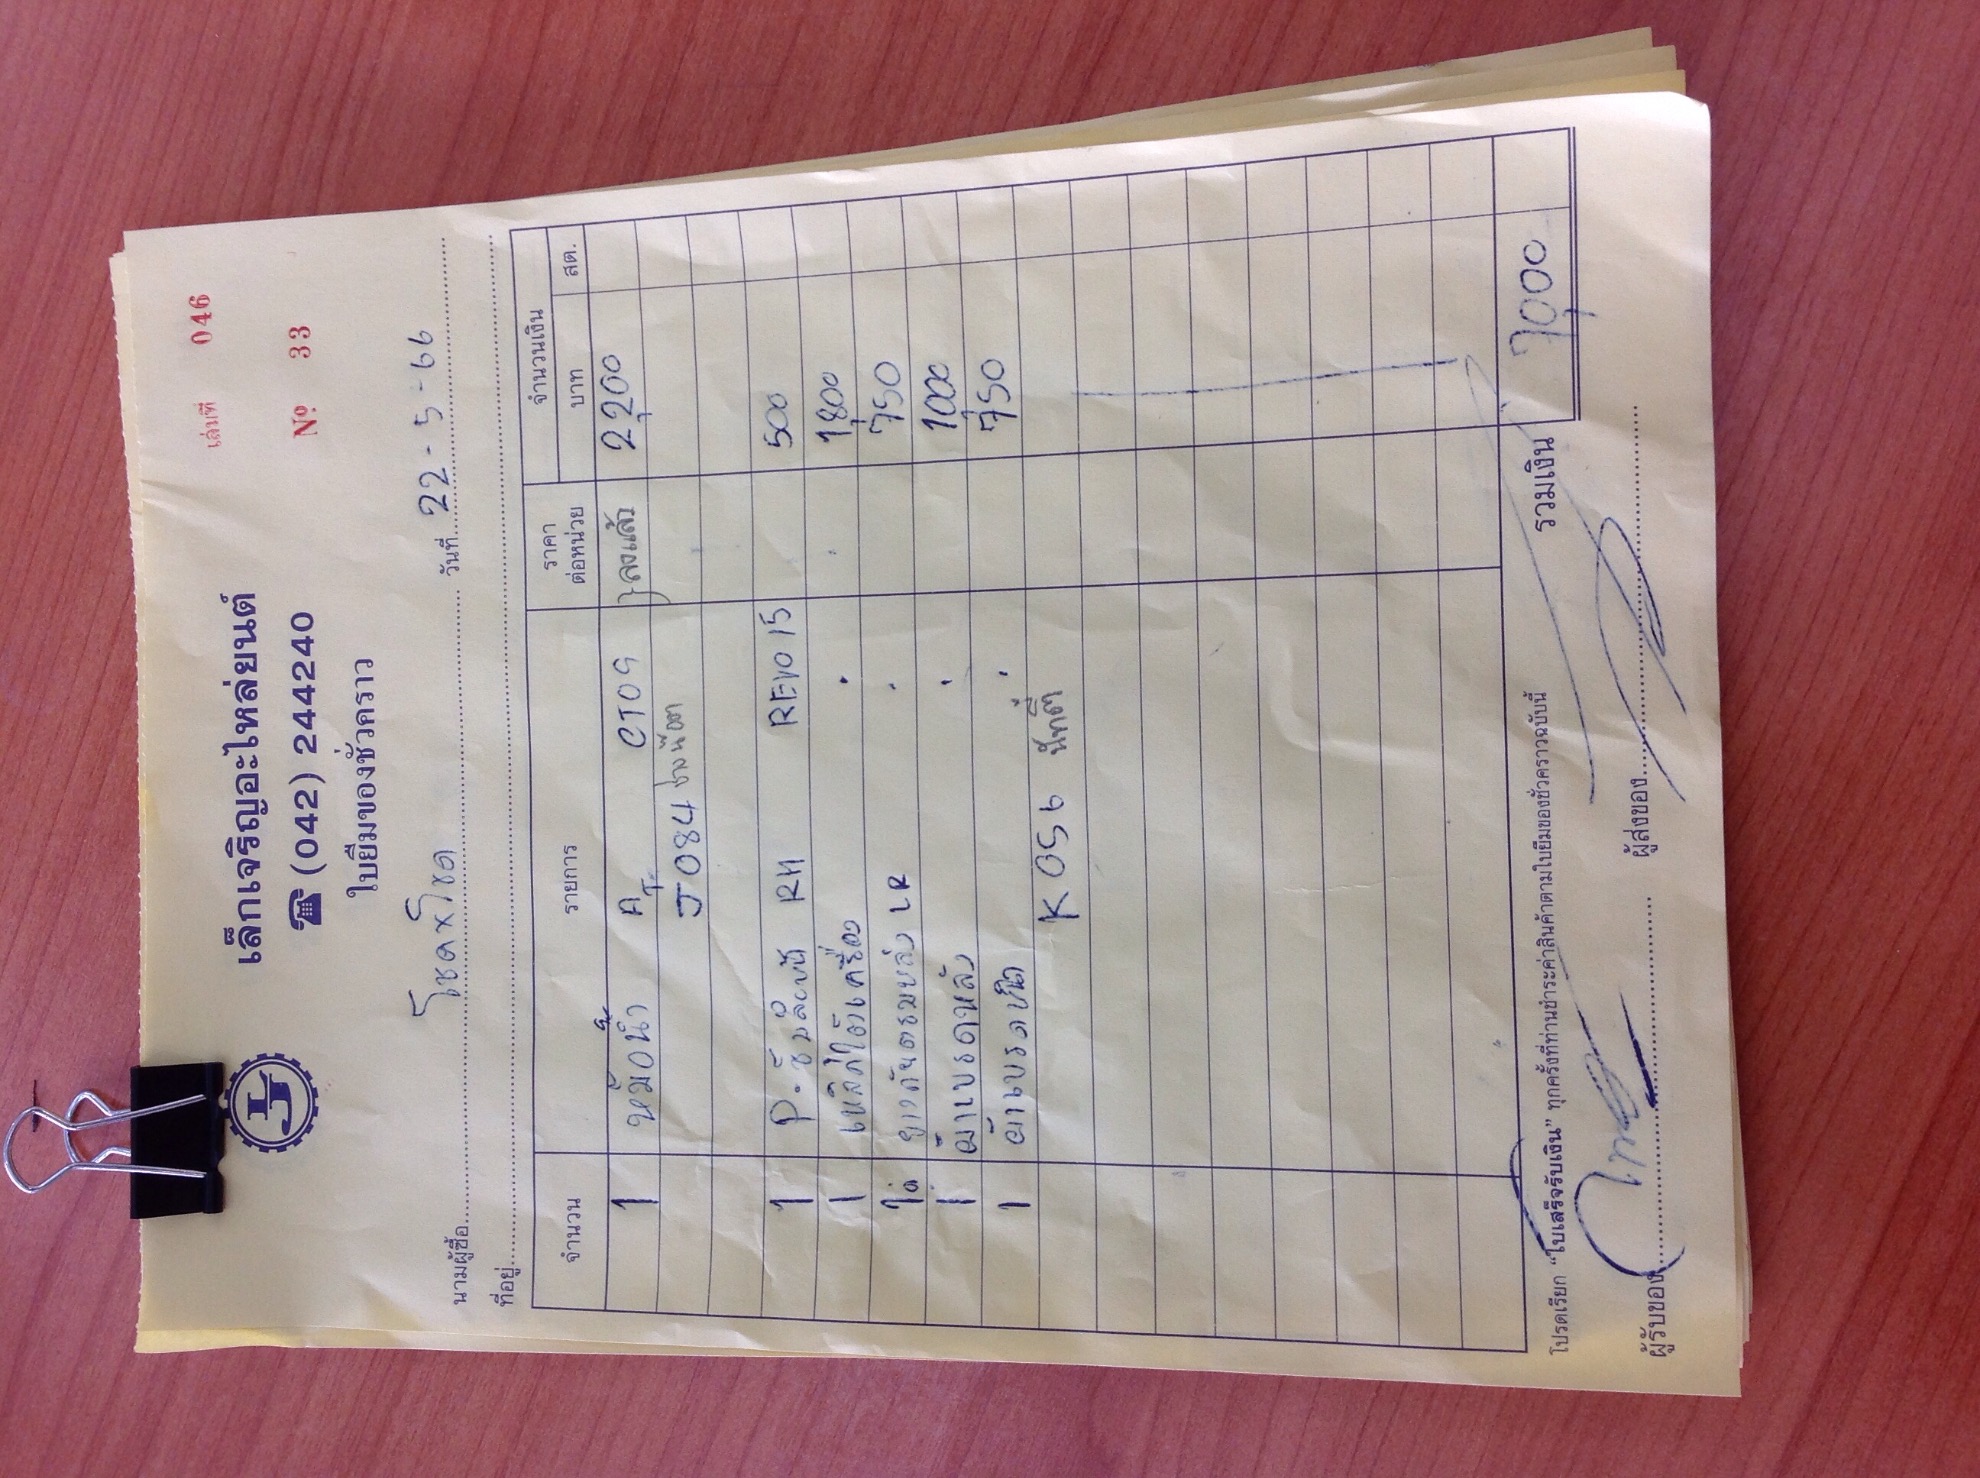 เล่มที่ 046
เล็กเจริญอะไหล่ยนต์
Nº 33
☎ (042) 244240
ใบยืมของชั่วคราว
นามผู้ซื้อ โชคxโชค วันที่ 22-5-66
ที่อยู่
จำนวน รายการ ราคาต่อหน่วย จำนวนเงิน
บาท สต.
1 หม้อน้ำ CTO9 } ลงแล้ว 2,200
J084
1 P. RH REVO 15 500
1 1,800
1 LR 750
1 ผ้าเบรดหลัง 1,000
1 ผ้าเบรด 750
K056
รวมเงิน 7,000
โปรดเรียก “ใบเสร็จรับเงิน” ทุกครั้งที่ท่านชำระค่าสินค้าตามใบยืมของชั่วคราวฉบับนี้
ผู้รับของ ผู้ส่งของ